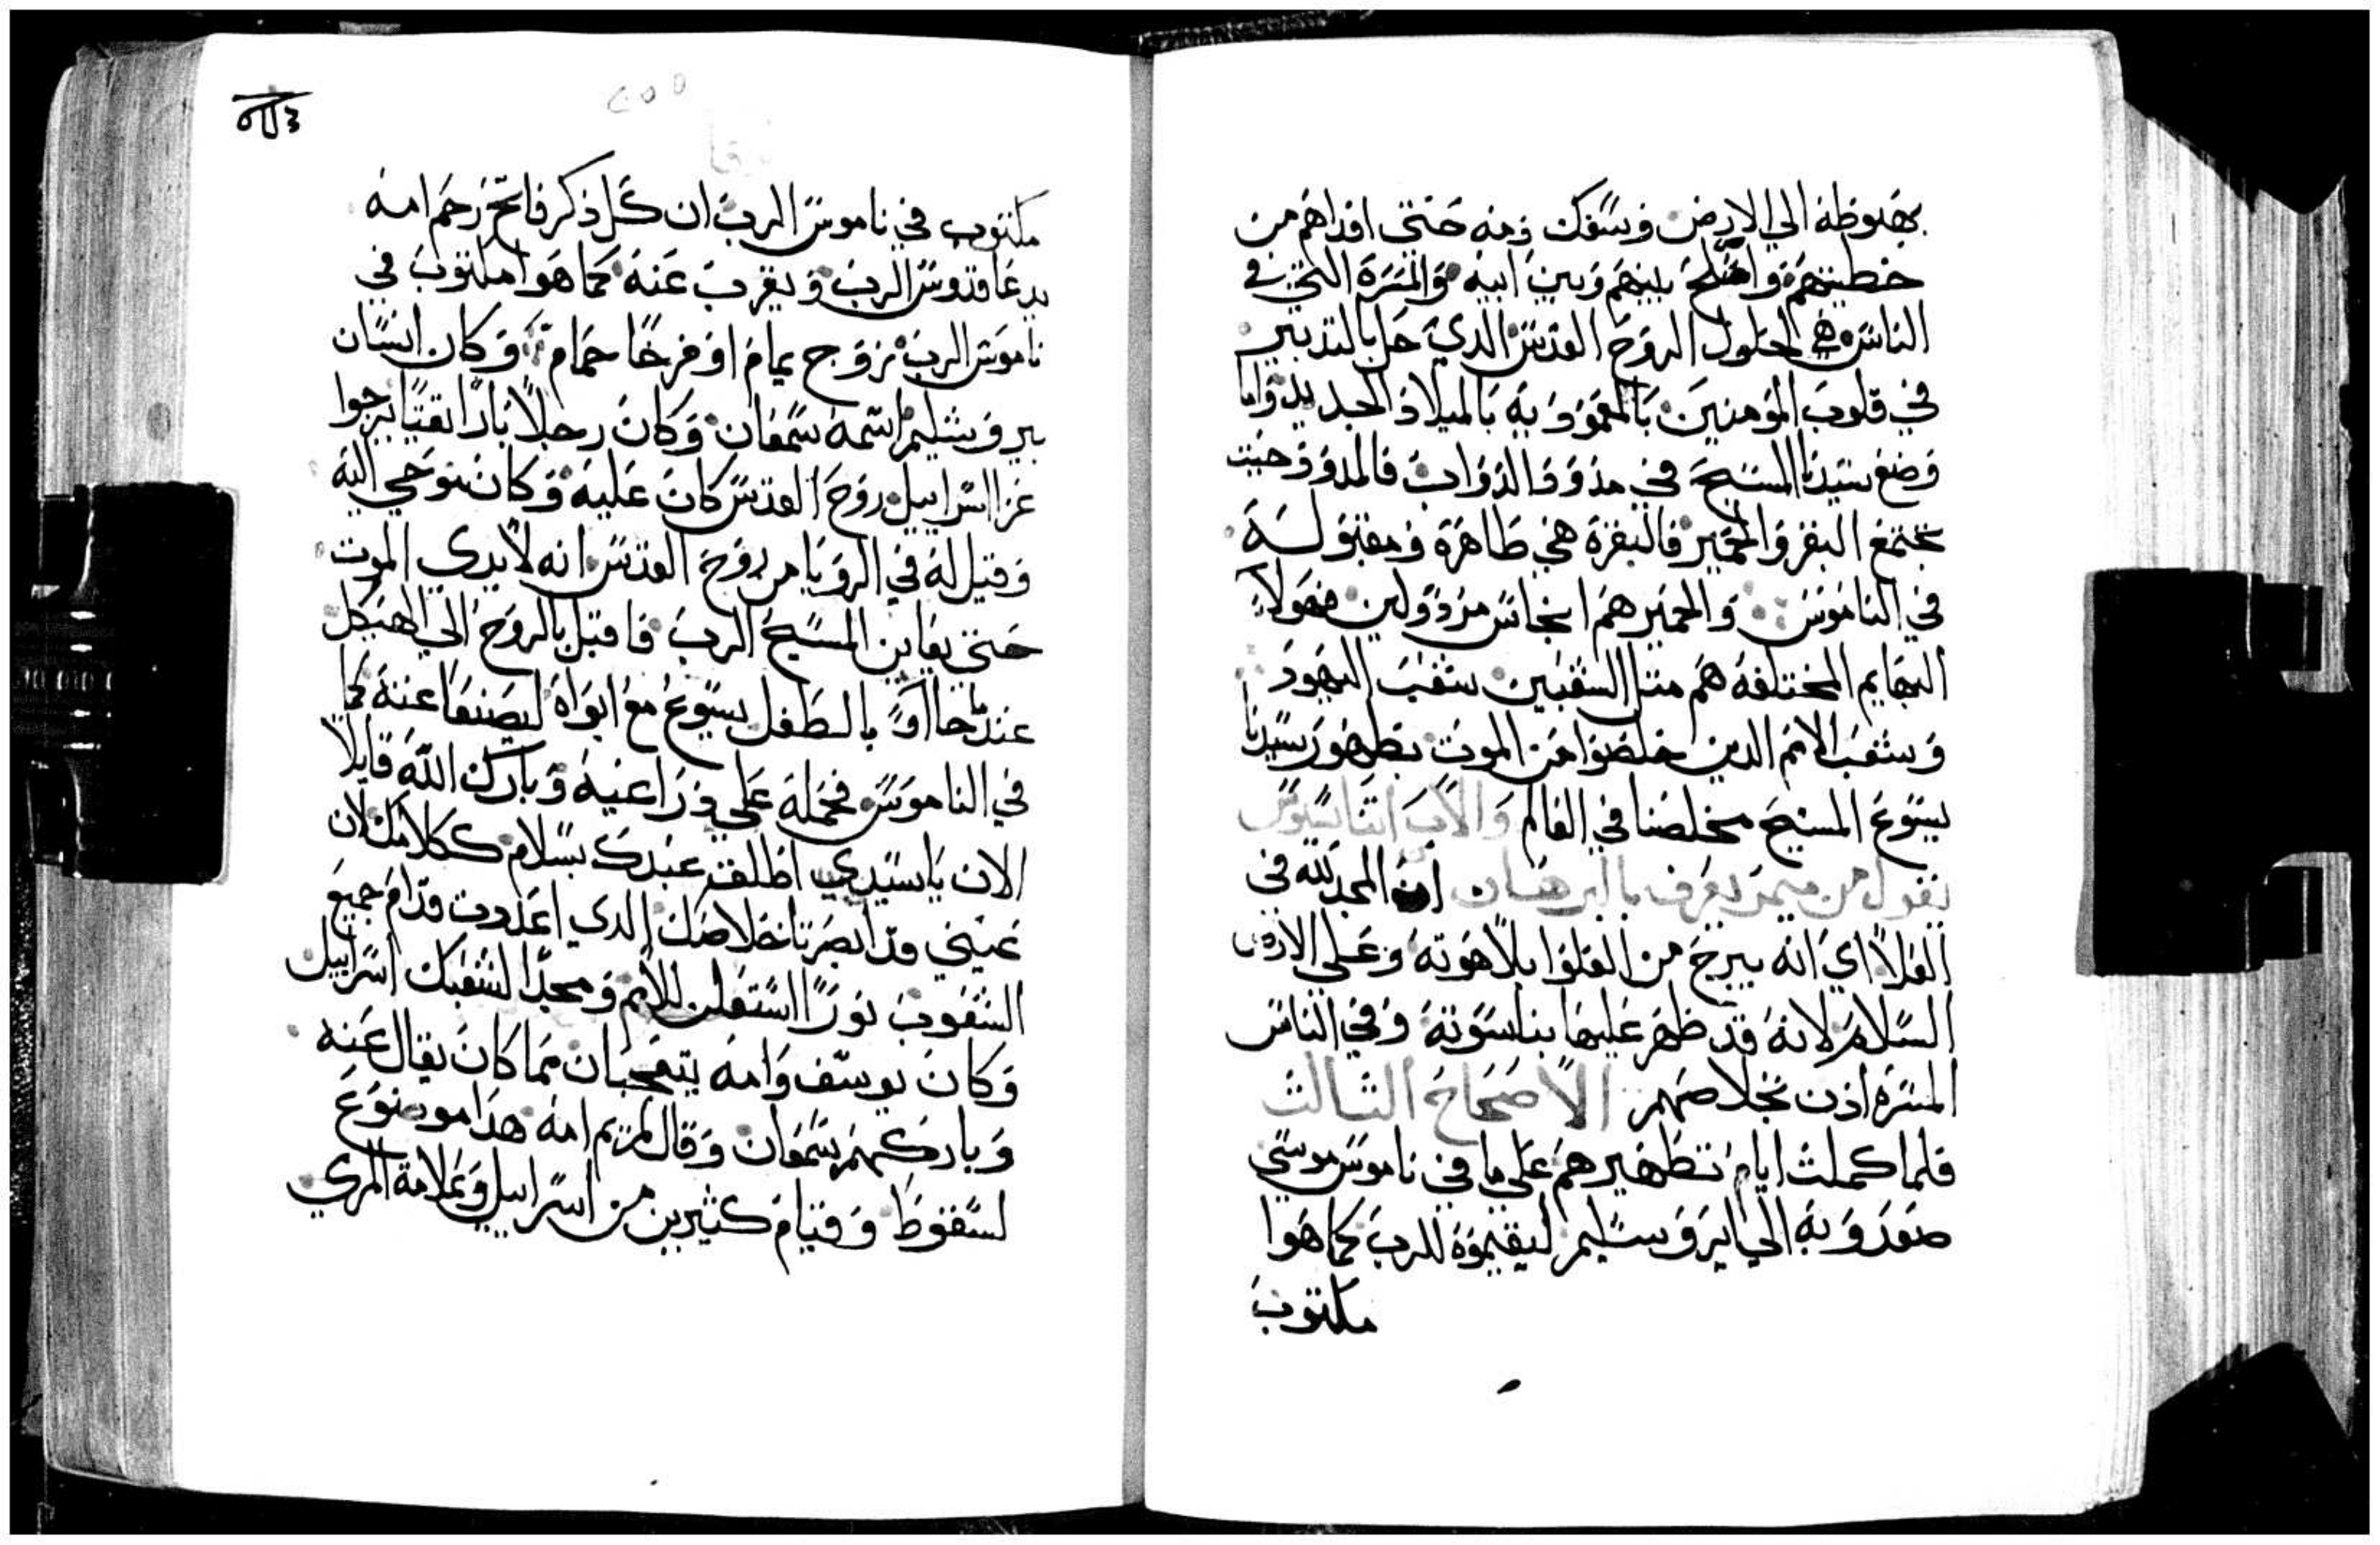 بهبوطه الي الارض وسفك دمه حتي افداهم من
خطيتهم واصلح بينهم وبين ابيه والمسرة التي في
الناس هي لحلول الروح القدس الدي حل بالتدبير
في قلوب المومنين بالمعمودية بالميلاد الجديد واما
وضع سيدنا المسيح في مدود الدواب فالمدود حيت
تجتمع البقر والحمير فالبقرة هي طاهرة ومقبولة
في الناموس والحمير هم انجاس مردولين فهولا
البهايم المختلفه هم متل الشعبين شعب اليهود
وشعب الامم الدين خلصوا من الموت بظهور سيدنا
يسوع المسيح مخلصنا في العالم والاب اتناسيوس
يقول من ميمر يعرف بالبرهان ان المجد لله في
العلا اي انه يبرح من العلوا بلاهوته وعلي الارض
السلام لانه قد ظهر عليها بناسوته وفي الناس
المسره اذن بخلاصهم الاصحاح الثالث
فلما كملت ايام تطهيرهم علي ما في ناموس موسي
صعدوا به الي ايروسليم ليقيموه للرب كما هوا
مكتوب
٢٥٥
مكتوب في ناموس الرب ان كل ذكر فاتح رحم امه
يدعا قدوس الرب ويقرب عنه كما هوا مكتوب في
ناموس الرب زوج يمام او فرخا حمام وكان انسان
بيروشليم اسمه سمعان وكان رجلا بارا تقيا يرجوا
عزا اسراييل وروح القدس كان عليه وكان يوحي اليه
وقيل له في الرويا من روح القدس انه لا يري الموت
حتي يعاين المسيح الرب فاقبل بالروح الي الهيكل
عندما جااو بالطفل يسوع مع ابواه ليصنعا عنه كما
في الناموس فحمله علي دراعيه وبارك الله قايلا
الان يا سيدي اطلق عبدك بسلام ككلامك لان
عيني قد ابصرتا خلاصك الدي اعددت قدام جميع
الشعوب نورا استعلن للامم ومجدا لشعبك اسراييل
وكان يوسف وامه يتعجبان مما كان يقال عنه
وباركهم سمعان وقال لمريم امه هدا موضوع
لسقوط وقيام كثيرين من اسراييل وعلامة المري